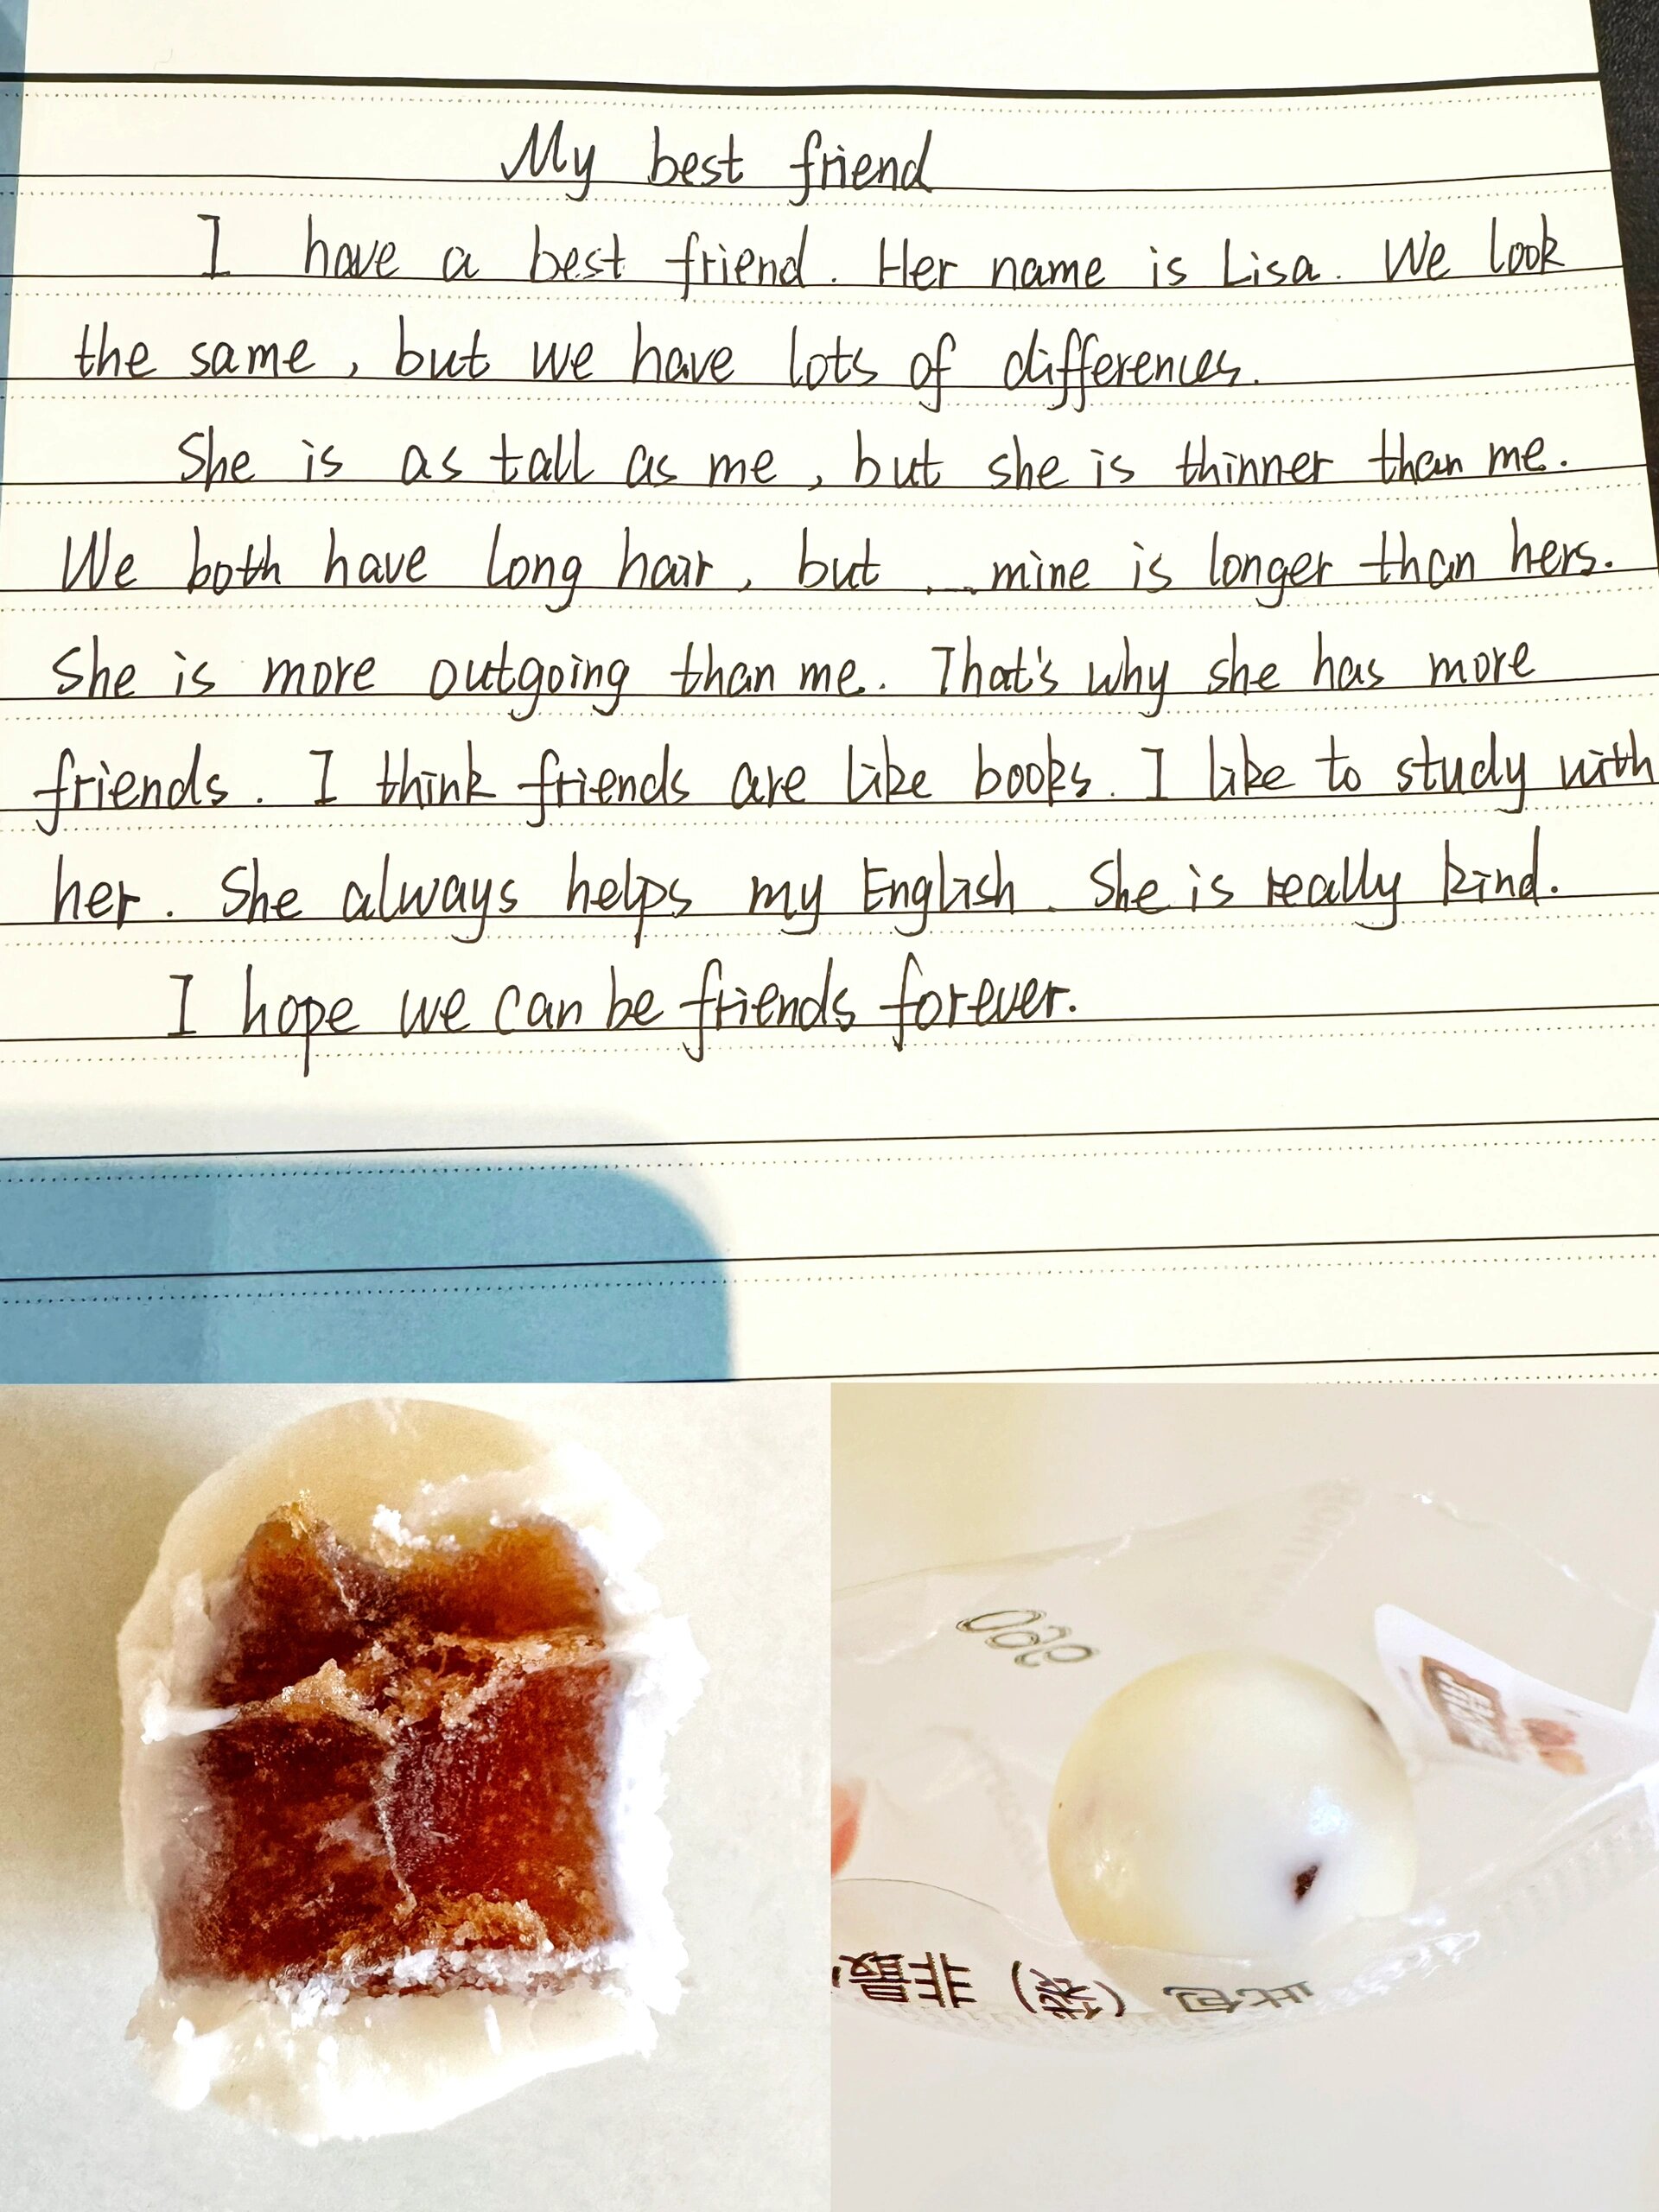 My best friend
I have a best friend. Her name is Lisa. We look
the same, but we have lots of differences.
She is as tall as me, but she is thinner than me.
We both have long hair, but mine is longer than hers.
She is more outgoing than me. That's why she has more
friends. I think friends are like books. I like to study with
her. She always helps my English. She is really kind.
I hope we can be friends forever.